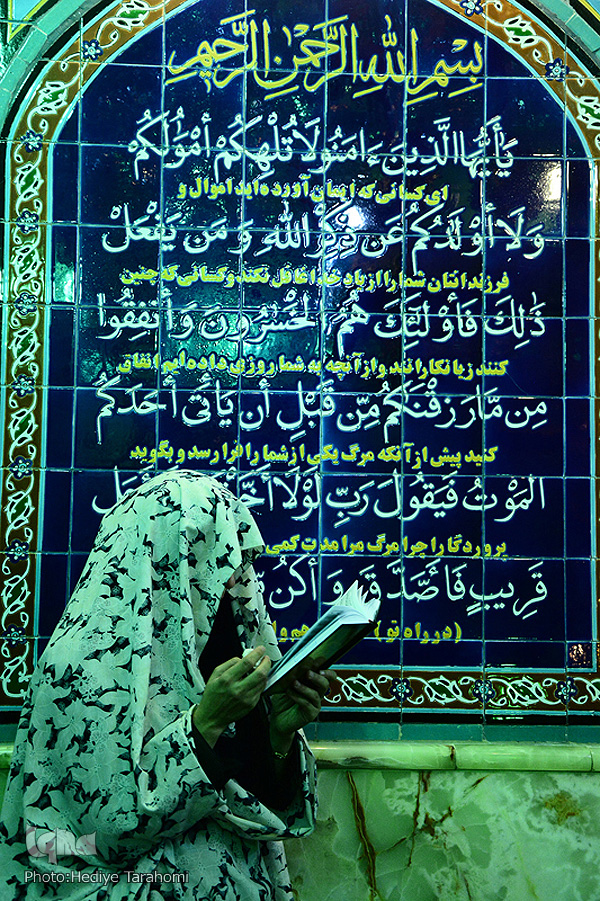 بِسْمِ اللهِ الرَّحْمنِ الرَّحيمِ
يَٰأَيُّهَا الَّذِينَ ءَامَنُوا لَا تُلْهِكُمْ أَمْوَٰلُكُمْ
ای کسانی که ایمان آورده اید اموال و
وَلَا أَوْلَٰدُكُمْ عَن ذِكْرِ اللهِ وَ مَن يَفْعَلْ
فرزندانتان شما را از یاد خدا غافل نکند و کسانی که چنین
ذَٰلِكَ فَأُوْلَٰئِكَ هُمُ الْخَٰسِرُونَ وَ أَنفِقُوا
کنند زیانکارانند و از آنچه به شما روزی داده ایم انفاق
مِن مَّا رَزَقْنَٰكُم مِّن قَبْلِ أَن يَأْتِىَ أَحَدَكُمُ
کنید پیش از آنکه مرگ یکی از شما را فرا رسد و بگوید
الْمَوْتُ فَيَقُولَ رَبِّ لَوْلَا
پروردگارا چرا مرگ مرا مدت کمی
قَرِيبٍ فَأَصَّدَّقَ وَ أَكُن
(در راه تو)
IQNA
Photo:Hediye Tarahomi